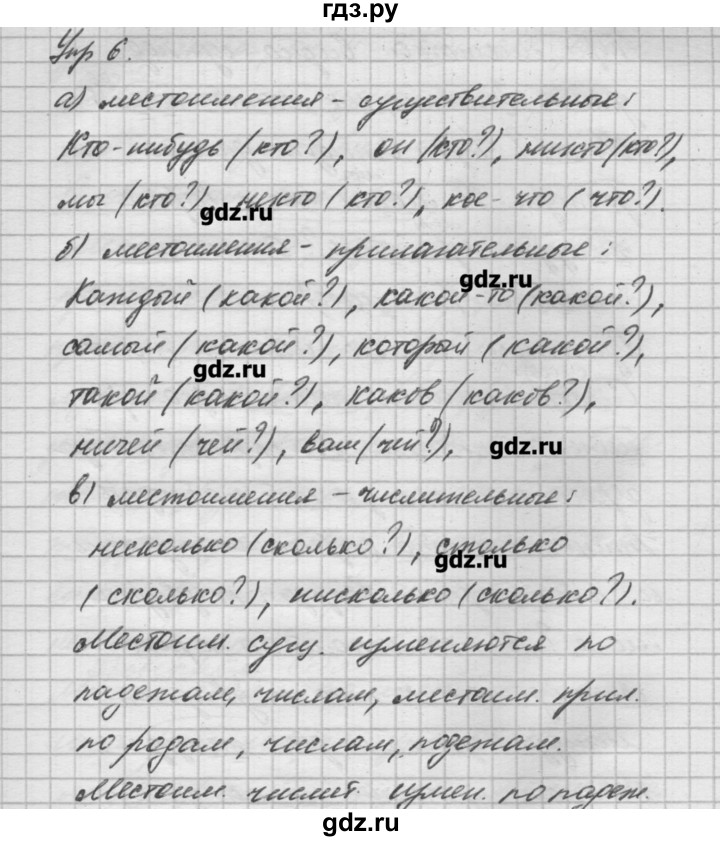 гдз.ру
Упр 6.
а) местоимения - существительные:
Кто-нибудь (кто?), он (кто?), никто (кто?),
мы (кто?), некто (кто?), кое-что (что?).
gdz.ru
б) местоимения - прилагательные:
gdz.ru
Каждый (какой?), какой-то (какой?),
самый (какой?), который (какой?),
gdz.ru
такой (какой?), каков (каков?),
ничей (чей?), вам (чей?),
gdz.ru
в) местоимения - числительные:
несколько (сколько?), столько
gdz.ru
(сколько?), нисколько (сколько?).
Местоим. сущ. изменяются по
падежам, числам, местоим. прил.
по родам, числам, падежам.
Местоим. числит. измен. по падеж.
gdz.ru